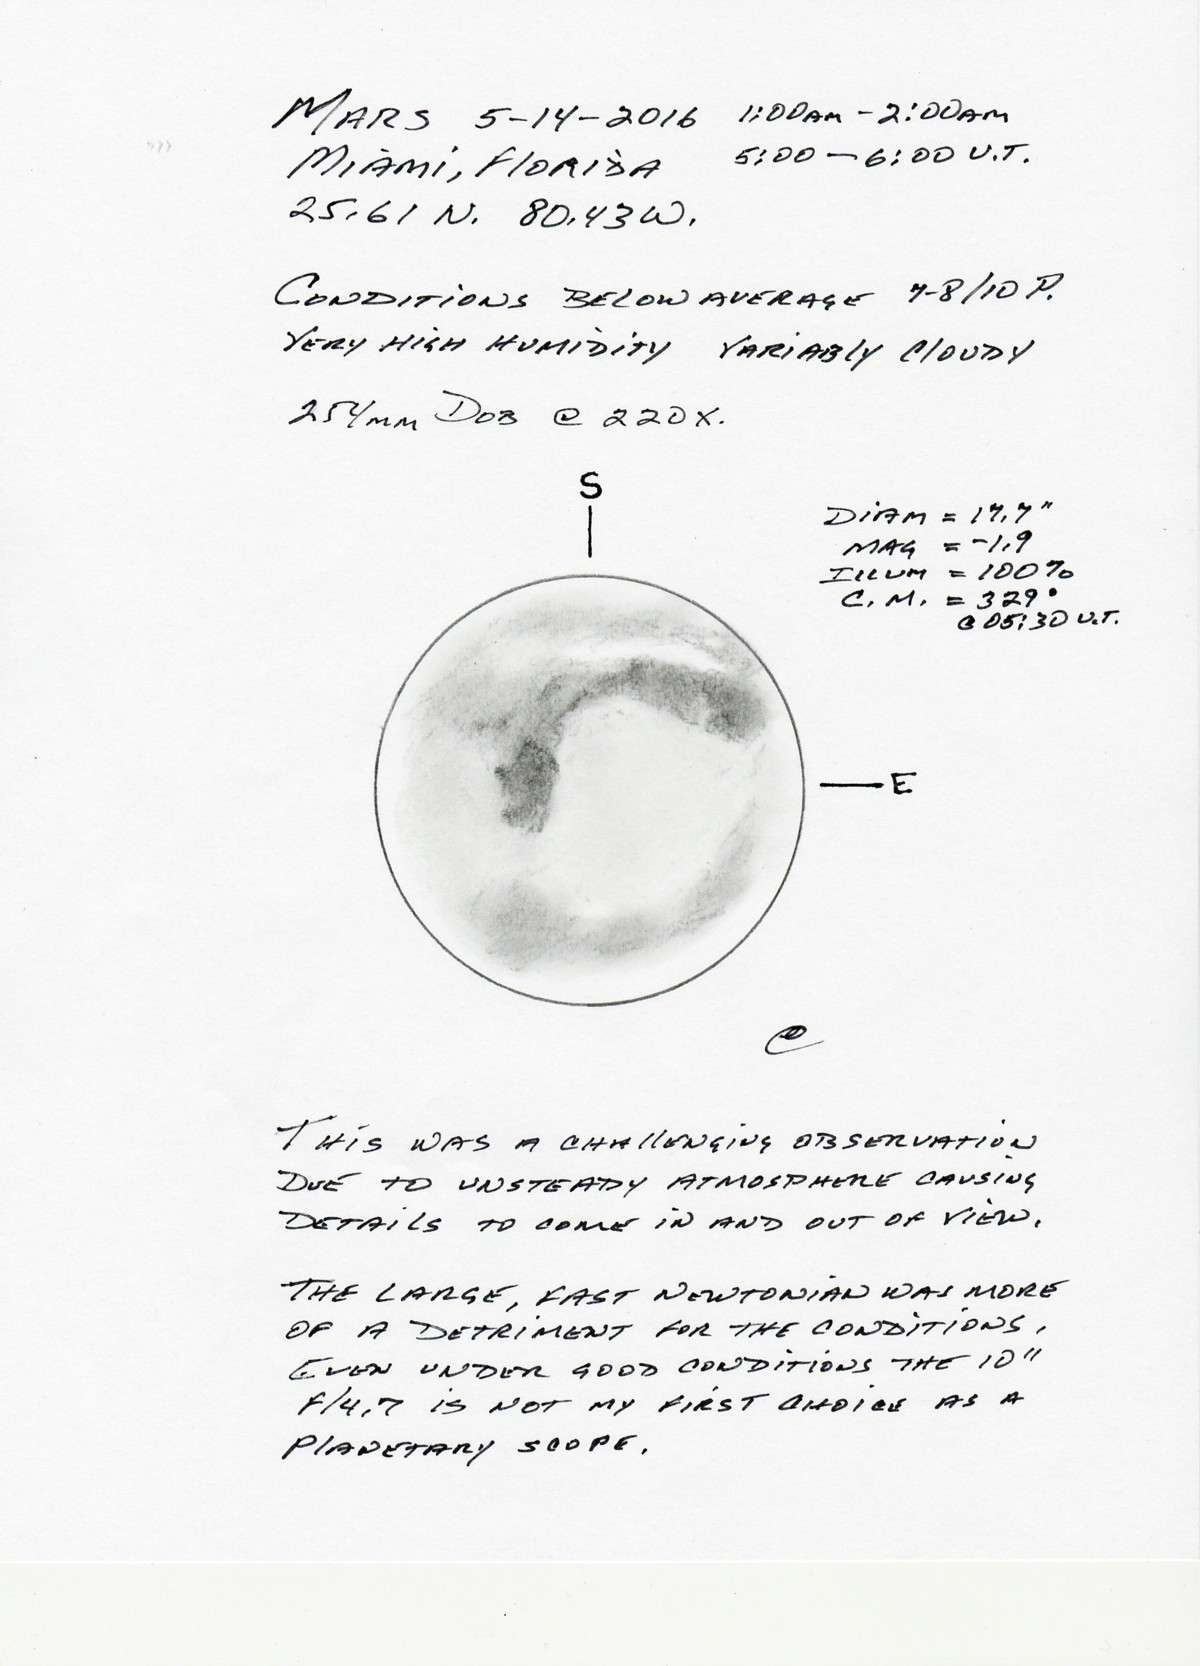 MARS 5-14-2016 1:00AM - 2:00AM
MIAMI, FLORIDA 5:00 - 6:00 U.T.
25.61 N. 80.43 W.
CONDITIONS BELOW AVERAGE 7-8/10 P.
VERY HIGH HUMIDITY VARIABLY CLOUDY
254mm DOB @ 220X.
S
DIAM = 17.7"
MAG = -1.9
ILLUM = 100%
C.M. = 329°
@ 05:30 U.T.
E
THIS WAS A CHALLENGING OBSERVATION
DUE TO UNSTEADY ATMOSPHERE CAUSING
DETAILS TO COME IN AND OUT OF VIEW.
THE LARGE, FAST NEWTONIAN WAS MORE
OF A DETRIMENT FOR THE CONDITIONS.
EVEN UNDER GOOD CONDITIONS THE 10"
F/4.7 IS NOT MY FIRST CHOICE AS A
PLANETARY SCOPE.